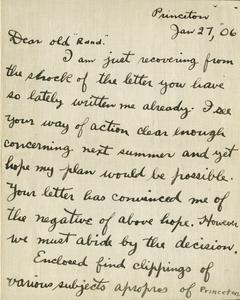 Princeton
Jan 27, '06
Dear old "Rand."
I am just recovering from
the shock of the letter you have
so lately written me already. I see
your way of action clear enough
concerning next summer and yet
hope my plan would be possible.
Your letter has convinced me of
the negative of above hope. However
we must abide by the decision.
Enclosed find clippings of
various subjects apropos of Princeton